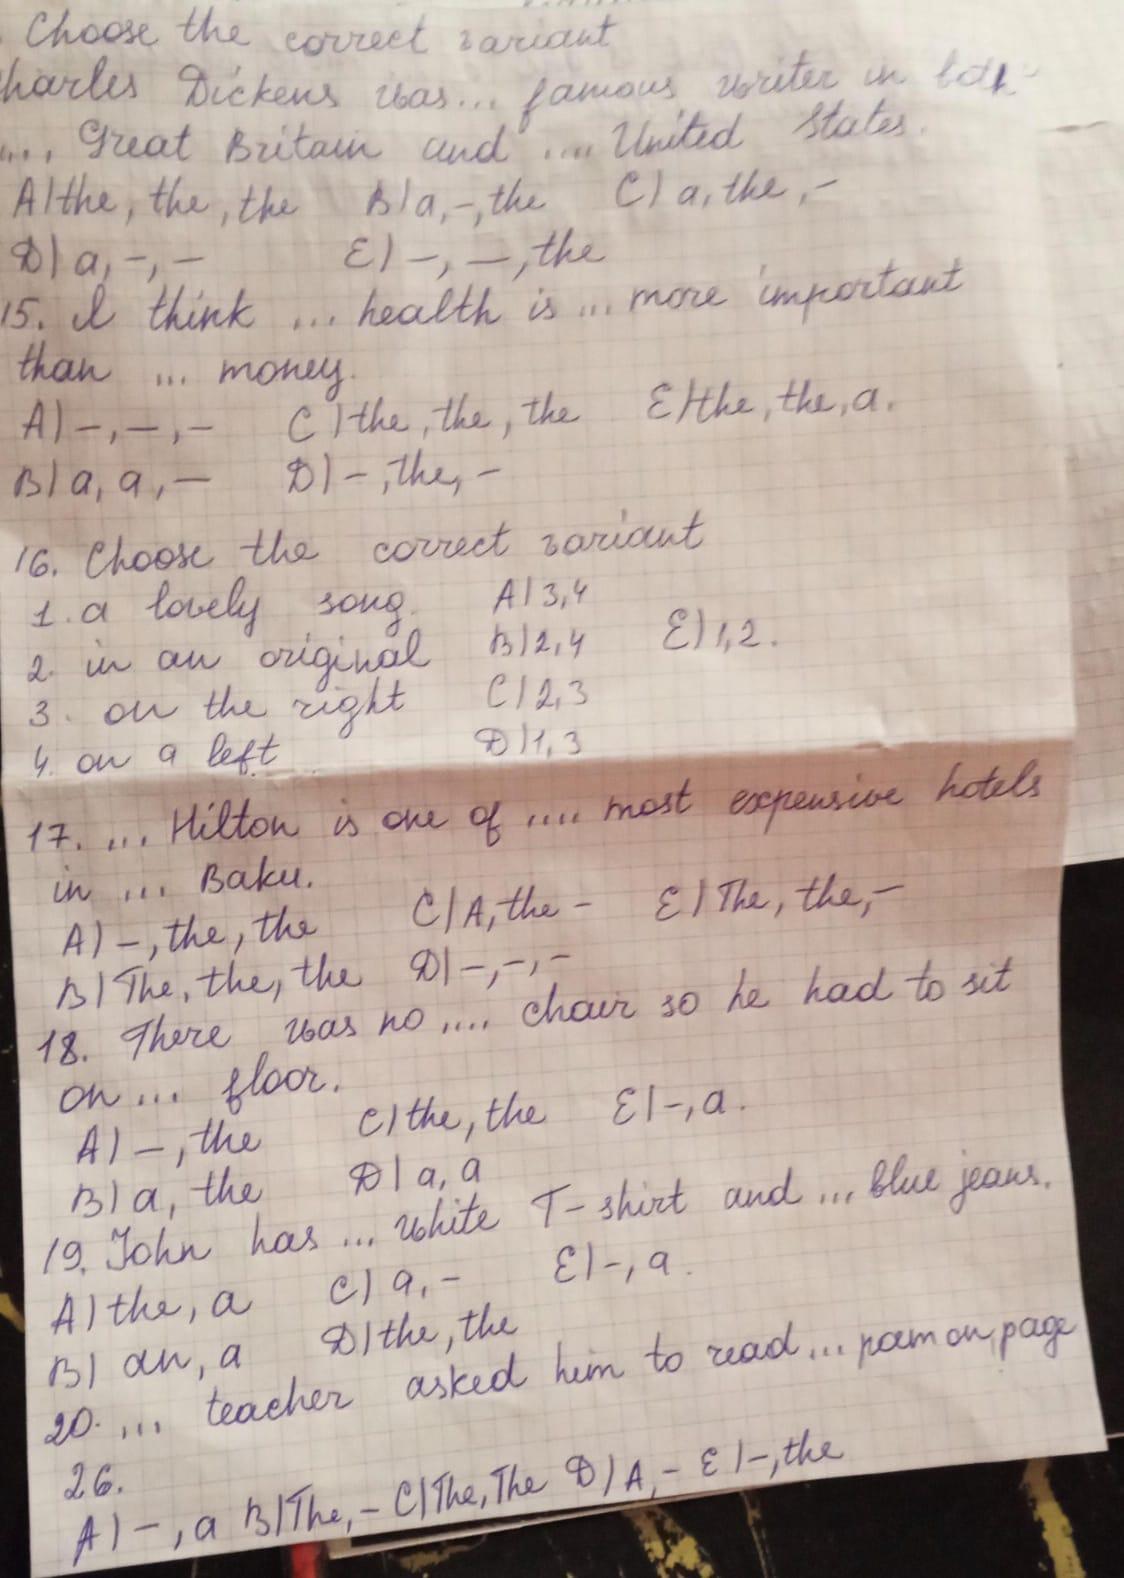 . Choose the correct variant
Charles Dickens was... famous writer in both
.... Great Britain and .... United States.
A) the, the, the B) a, -, the C) a, the, -
D) a, -, - E) -, -, the
15. I think ... health is ... more important
than ... money.
A) -, -, - C) the, the, the E) the, the, a.
B) a, a, - D) -, the, -
16. Choose the correct variant
1. a lovely song. A) 3,4
2. in an original B) 2,4 E) 1,2.
3. on the right C) 2,3
4. on a left D) 1,3
17. ... Hilton is one of .... most expensive hotels
in ... Baku.
A) -, the, the C) A, the - E) The, the, -
B) The, the, the D) -, -, -
18. There was no .... chair so he had to sit
on ... floor.
A) -, the C) the, the E) -, a.
B) a, the D) a, a
19. John has ... white T-shirt and ... blue jeans.
A) the, a C) a, - E) -, a.
B) an, a D) the, the
20. ... teacher asked him to read ... poem on page
26.
A) -, a B) The, - C) The, The D) A, - E) -, the